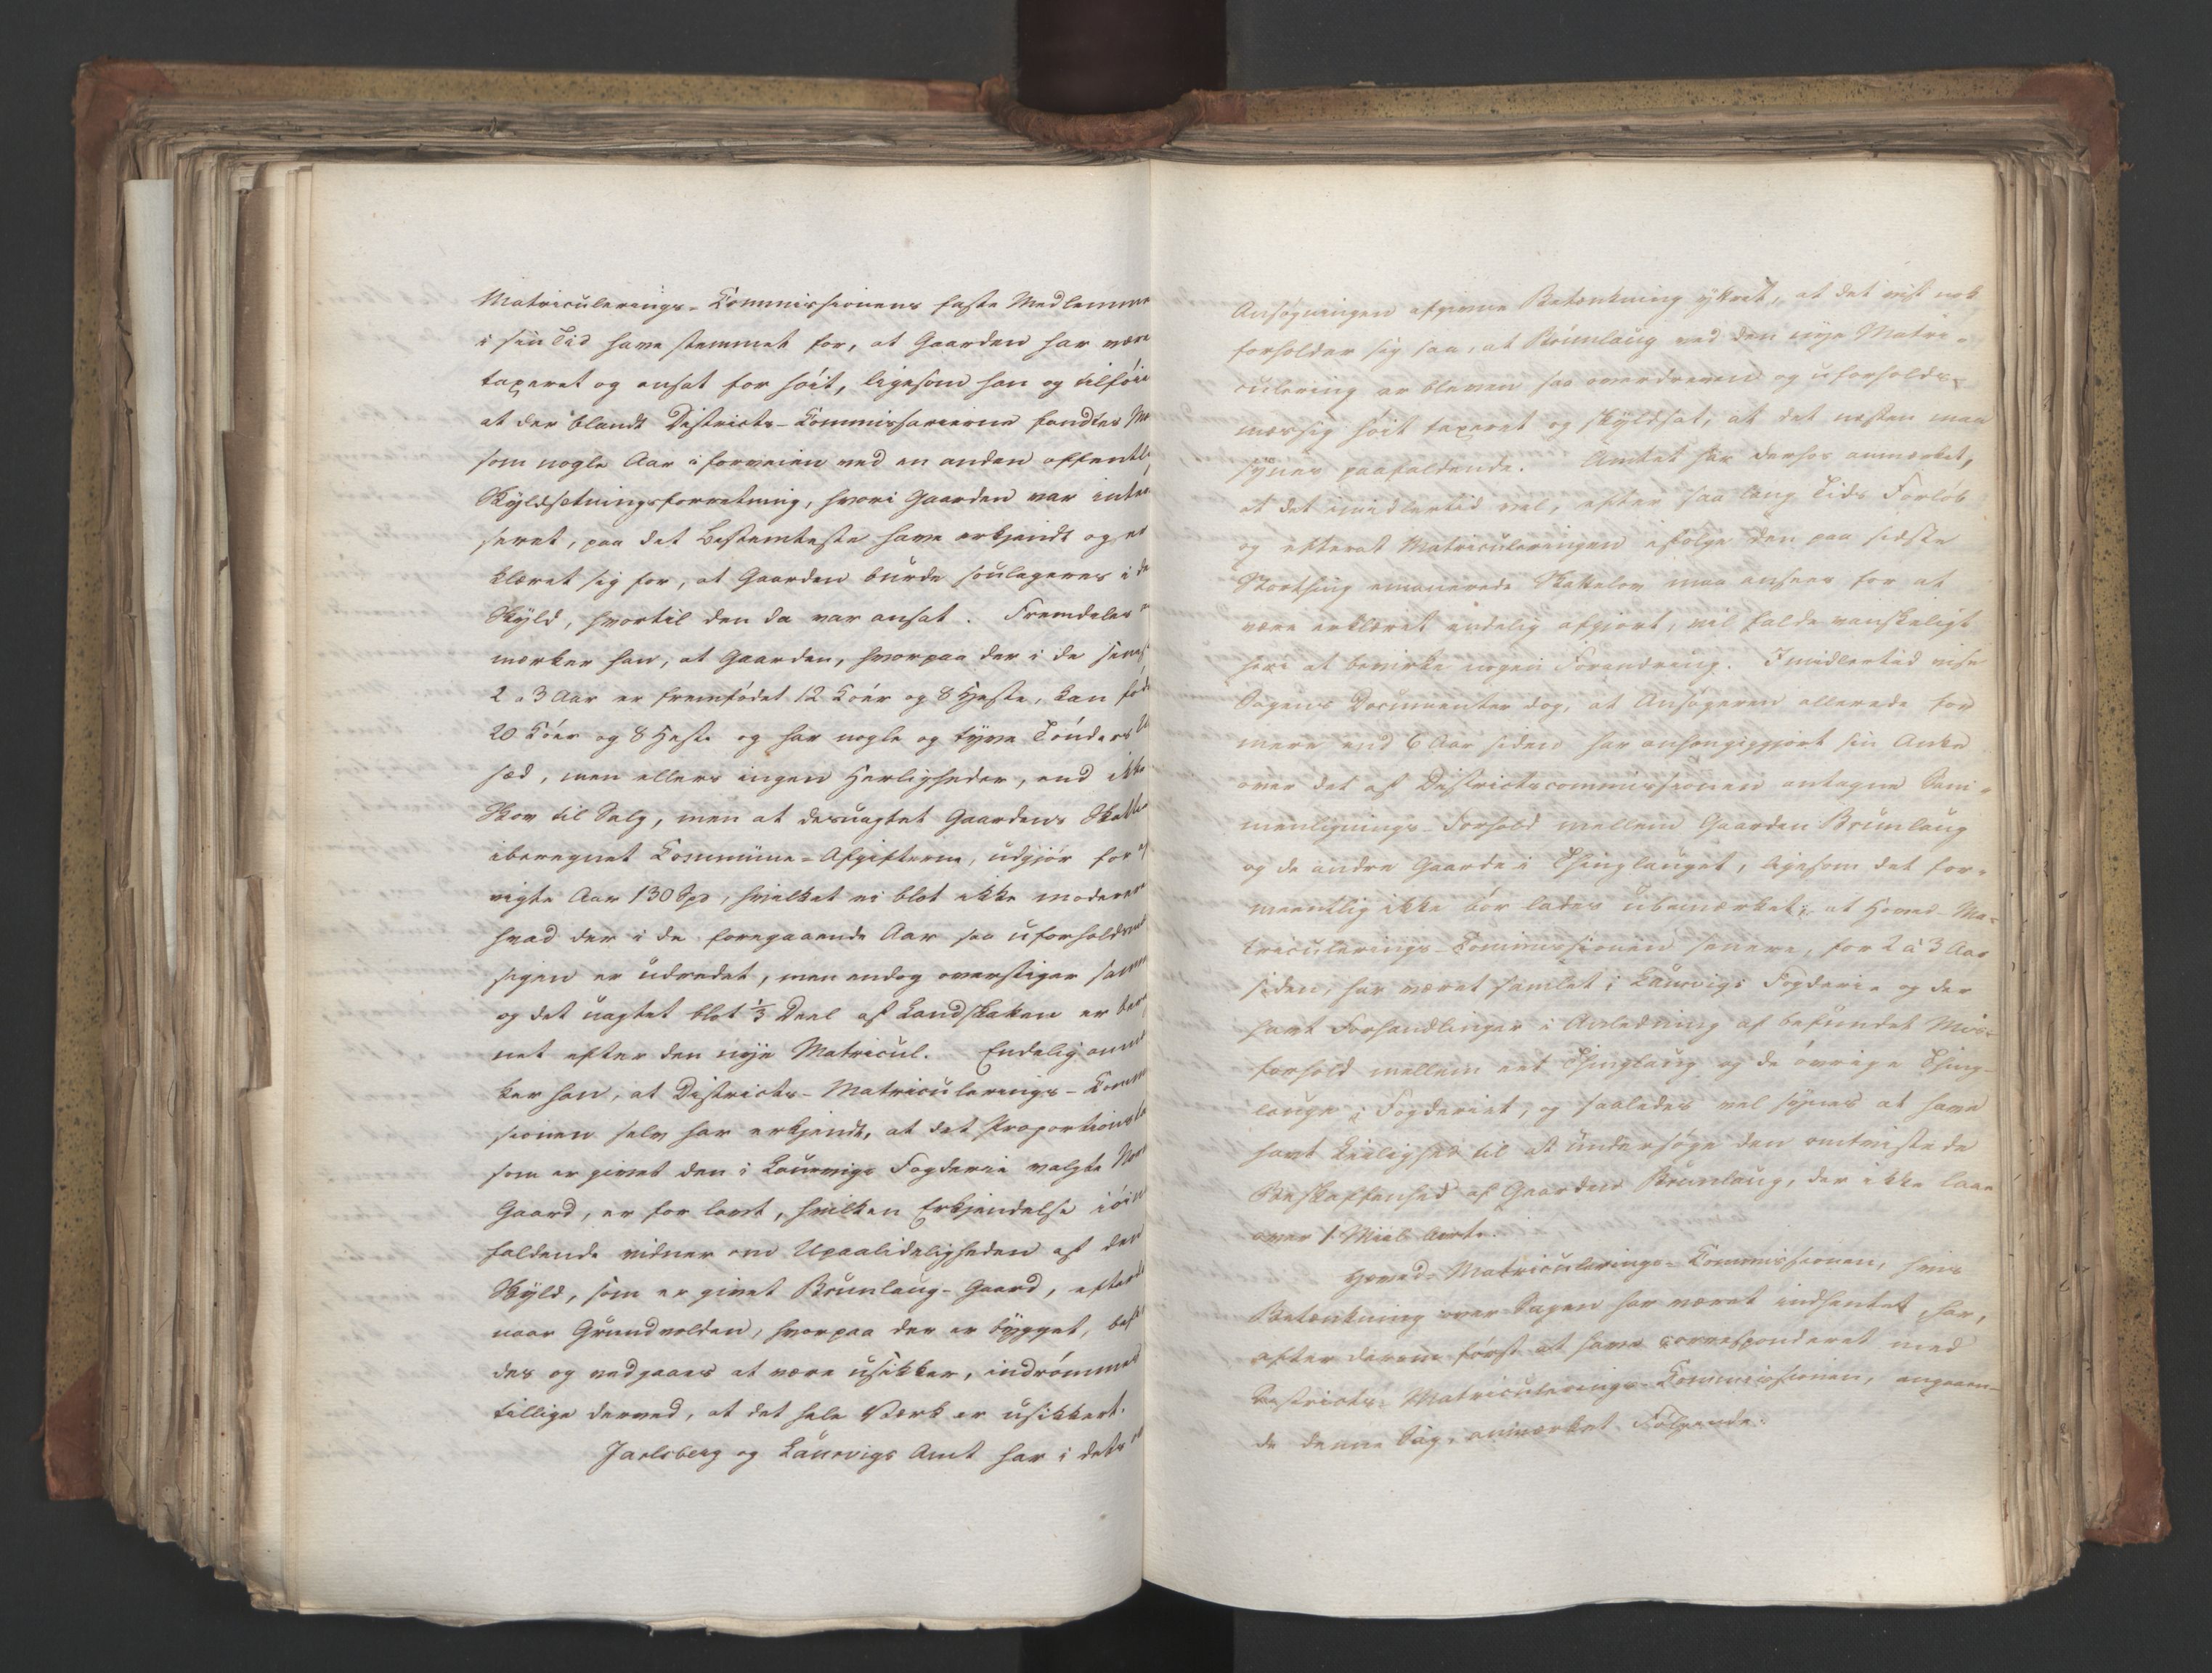 Matriculerings-Commissionens faste Medlemme
i sin Tid have stemmet for, at Gaarden har være
taxeret og ansat for høit, ligesom han og tilføie
at der blandt Districts-Commissairerne fandtes Mæ
som nogle Aar i forveien ved en anden offentli
Skyldsetningsforretning, hvori Gaarden var intere
seret, paa det Bestemteste have erkjendt og er
klæret sig for, at Gaarden burde soulageres i de
Skyld, hvortil den da var ansat. Fremdeles
mærker han, at Gaarden, hvorpaa der i de senes
2 a 3 Aar er fremfødet 12 Køer og 8 Heste, kan føde
20 Køer og 8 Heste og har nogle og tyve Tønders
sæd, men ellers ingen Herligheder, end ikke
Skov til Salg, men at desuagtet Gaardens Skatte
iberegnet Commune-Afgifterne, udgjør for
vigte Aar 130 Spd, hvilket ei blot ikke moderere
hvad der i de foregaaende Aar saa uforholdsmæ
sigen er udredet, men endog overstiger samme
og det uagtet blot 1/3 Deel af Landskatten er bereg
net efter den nye Matricul. Endelig anmær
ker han, at Districts-Matriculerings-Commis
sionen selv har erkjendt, at det Proportionstal
som er givet den i Laurvigs Fogderie valgte Nor
Gaard, er for lavt, hvilken Erkjendelse iøine
faldende vidner om Upaalideligheden af den
Skyld, som er givet Brunlaug-Gaard, efterdi
naar Grundvolden, hvorpaa der er bygget, befin
des og vedgaaes at være usikker, indrømmes
tillige derved, at det hele Værk er usikkert.
Jarlsberg og Laurvigs Amt har i dets
Ansøgningen afgivne Betænkning yttret, at det vist nok
forholder sig saa, at Brunlaug ved den nye Matri-
culering er bleven saa overdreven og uforholds-
mæssig høit taxeret og skyldsat, at det næsten maa
synes paafaldende. Amtet har derhos anmærket,
at det imidlertid vel, efter saa lang Tids Forløb
og efterat Matriculeringen ifølge den paa sidste
Storthing emanerede Skattelov maa ansees for at
være erklæret endelig afgjort, vil falde vanskeligt
heri at bevirke nogen Forandring. Imidlertid vise
Sagens Documenter dog, at Ansøgeren allerede for
mere end 6 Aar siden har anhængiggjort sin Anke
over det af Districtscommissionen antagne Sam-
menlignings-Forhold mellem Gaarden Brunlaug
og de andre Gaarde i Thinglauget, ligesom det for-
meentlig ikke bør lades ubemærket, at Hoved-Ma-
triculerings-Commissionen senere, for 2 à 3 Aar
siden, har været samlet i Laurvigs Fogderie og der
havt Forhandlinger i Anledning af befundet Mis-
forhold mellem eet Thinglaug og de øvrige Thing-
lauge i Fogderiet, og saaledes vel synes at have
havt Leilighed til at undersøge den omtvistede
Beskaffenhed af Gaarden Brunlaug, der ikke laae
over 1 Miil borte.
Hoved-Matriculerings-Commissionen, hvis
Betænkning over Sagen har været indhentet, har,
efter derom først at have correspønderet med
Districts-Matriculerings-Commissionen, angaaen-
de denne Sag, anmærket Følgende: